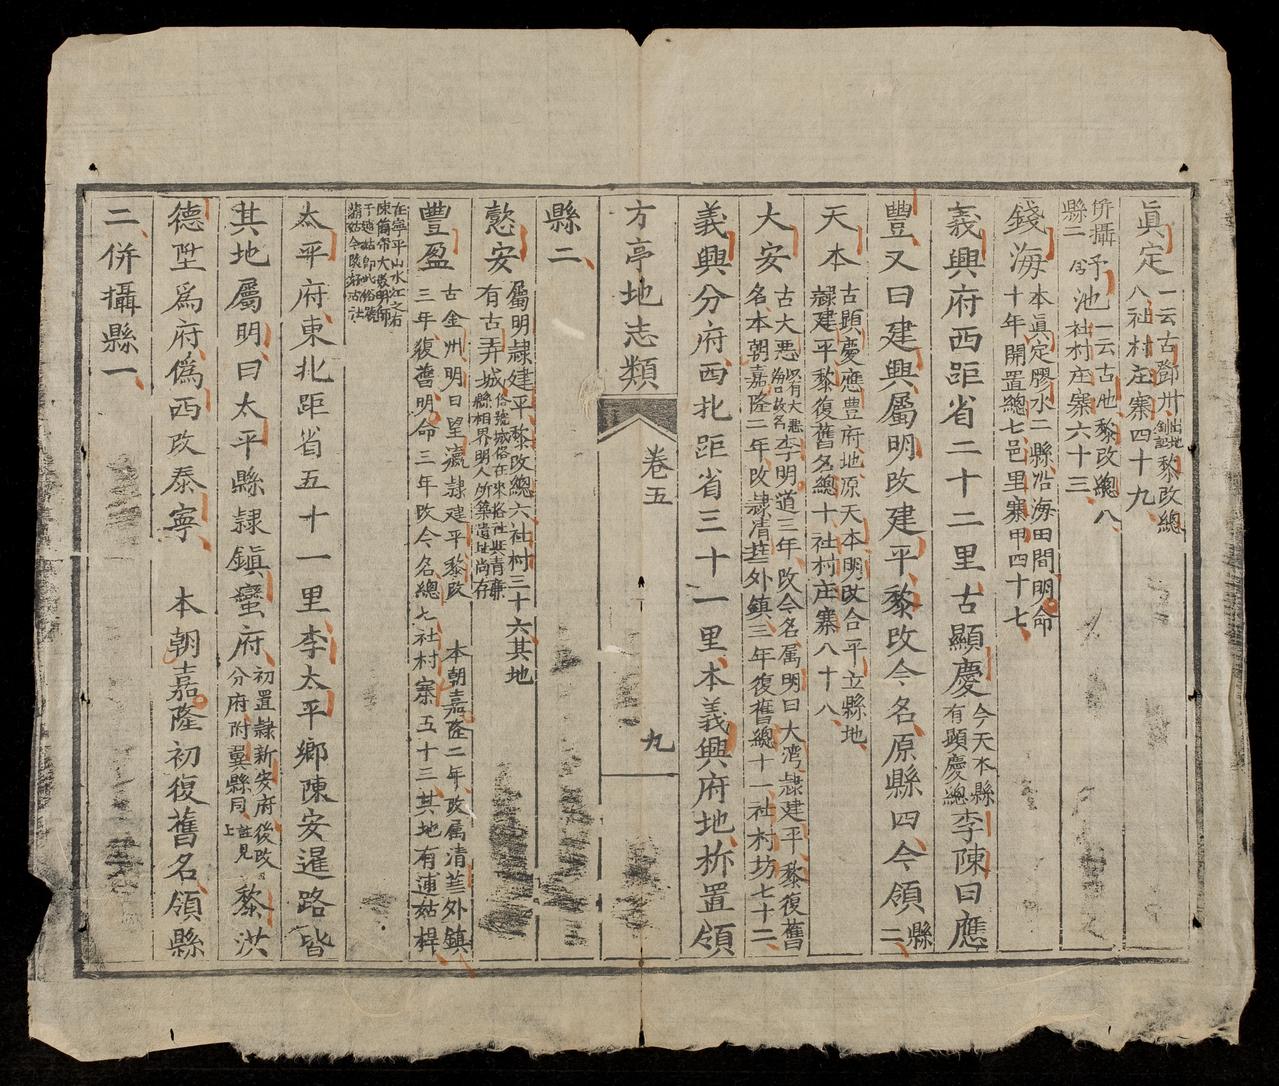 眞定一云古鄧州黎改總
八社村庄寨四十九
併攝
縣二
池一云古
黎改總八
社村庄寨六十三
錢海本眞定膠水二縣沿海田間明命
十年開置總七邑里寨甲四十七
義興府西距省二十二里古顯慶今天本縣
有顕慶總李陳曰應
豐又曰建興屬明改建平黎改今名原縣四今領縣
二
天本古顕慶應豊府地原天本明改合平立縣地
隷建平黎復舊名總十社村庄寨八十八
大安古大悪以有大悪
海口故名李明道三年改今名属明曰大湾隷建平黎復舊
名本朝嘉隆二年改隷清華外鎮三年復舊總十一社村坊七十二
義興分府西北距省三十一里本義興府地析置領
方亭地志類
卷五
九
縣二
懿安屬明隷建平黎改總六社村三十六其地
有古弄城俗號城俗在來格社與青廉
縣相界明人所築遺址尚存
豐盈古金州明曰望瀛隷建平黎改 本朝嘉隆二年改属清華外鎮
三年復舊明命三年改今名總七社村寨五十三其地有逋姑桿
在寧平山水江之右
太平府東北距省五十一里李太平鄉陳安暹路皆
其地屬明曰太平縣隷鎮蠻府初置隷新安府後改
分府附冀縣同註見
上黎洪
德陞爲府僞西改泰寧 本朝嘉隆初復舊名領縣
二併攝縣一